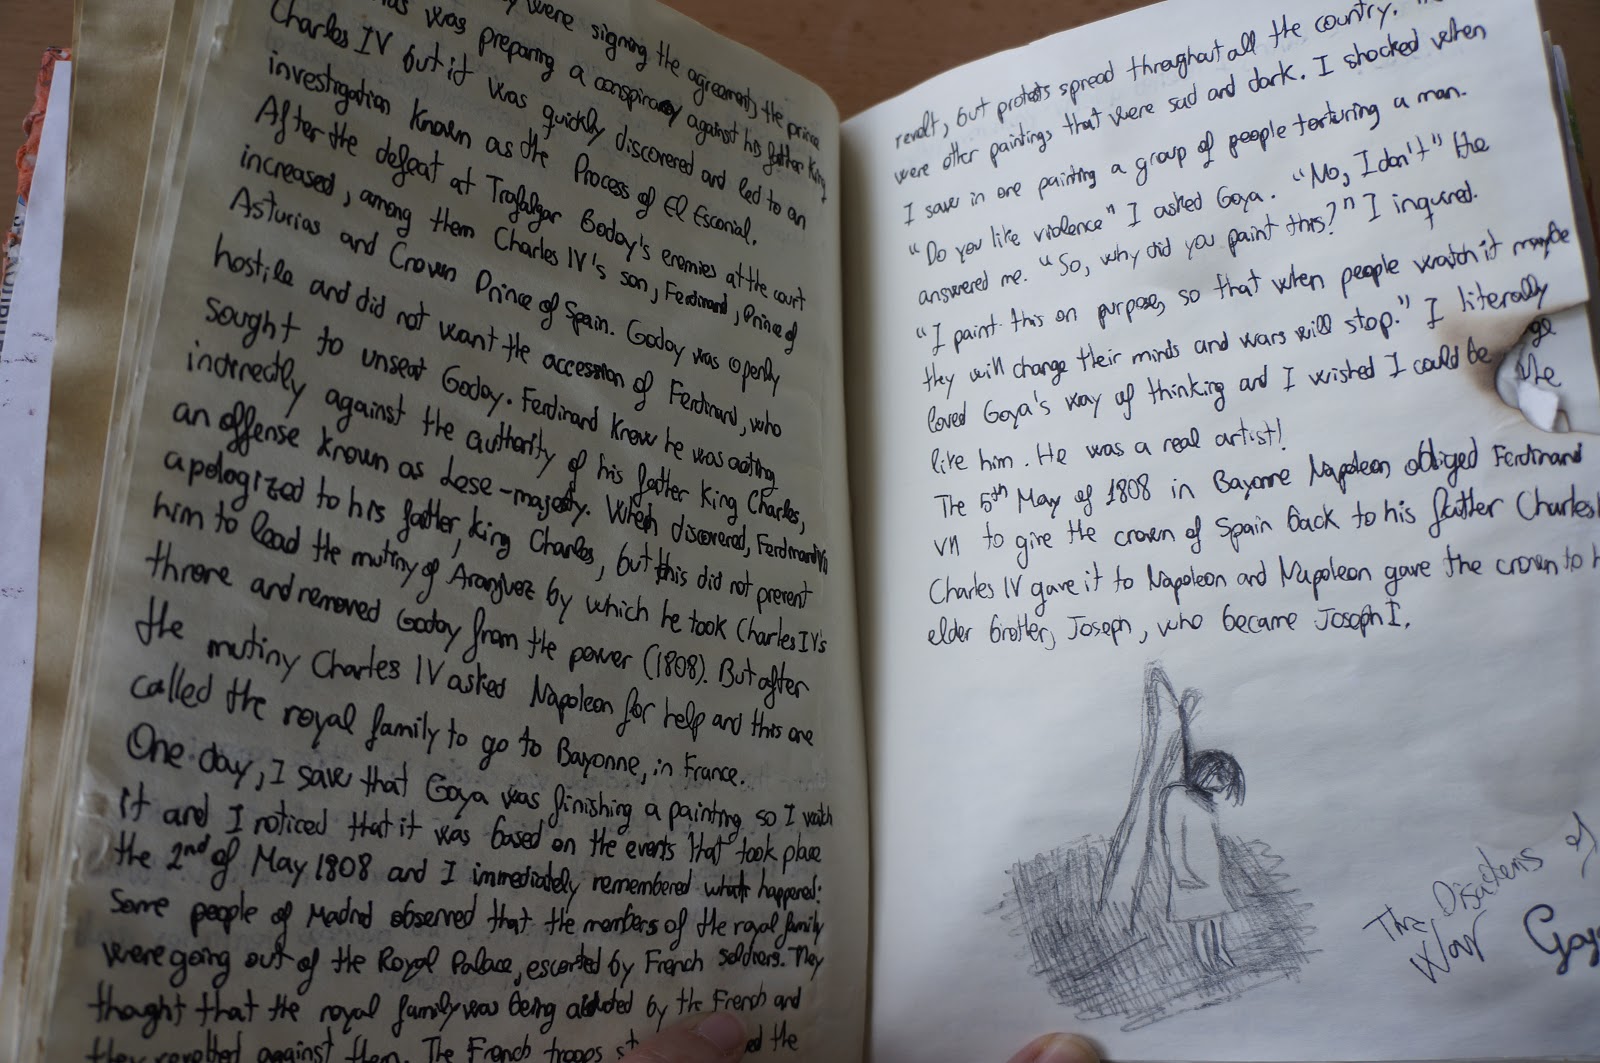 were signing the agreement, the prince
was preparing a conspiracy against his father King
Charles IV but it was quickly discovered and led to an
investigation known as the Process of El Escorial.
After the defeat at Trafalgar Godoy's enemies at the court
increased, among them Charles IV's son, Ferdinand, Prince of
Asturias and Crown Prince of Spain. Godoy was openly
hostile and did not want the accession of Ferdinand, who
sought to unseat Godoy. Ferdinand knew he was acting
indirectly against the authority of his father King Charles,
an offense known as Lese-majesty. When discovered, Ferdinand VII
apologized to his father, King Charles, but this did not prevent
him to lead the mutiny of Aranjuez by which he took Charles IV's
throne and removed Godoy from the power (1808). But after
the mutiny Charles IV asked Napoleon for help and this one
called the royal family to go to Bayonne, in France.
One day, I saw that Goya was finishing a painting so I watch
it and I noticed that it was based on the events that took place
the 2nd of May 1808 and I immediately remembered what happened:
Some people of Madrid observed that the members of the royal family
were going out of the Royal Palace, escorted by French soldiers. They
thought that the royal family was being abducted by the French and
they revolted against them. The French troops the
revolt, but protests spread throughout all the country.
were other paintings that were sad and dark. I shocked when
I saw in one painting a group of people torturing a man.
"Do you like violence" I asked Goya. "No, I don't" he
answered me. "So, why did you paint this?" I inqured.
"I paint this on purpose, so that when people watch it maybe
they will change their minds and wars will stop." I literally
loved Goya's way of thinking and I wished I could be
like him. He was a real artist!
The 5th May of 1808 in Bayonne Napoleon, obliged Ferdinand
VII to give the crown of Spain back to his father Charles
Charles IV gave it to Napoleon and Napoleon gave the crown to
elder brother, Joseph, who became Joseph I.
The Disacters of
War
Goya